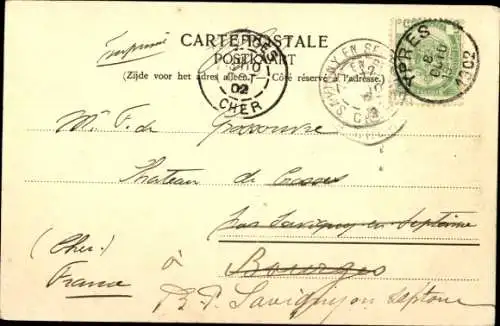 Imprimé
CARTE POSTALE
POSTKAART
(Zijde voor het adres alleen.) — Côté réservé à l'adresse.)
BOURGES
02
CHER
SAVIGNY EN SE
YPRES
8
1902
Mr. F. de
Chateau de Cosses
par Savigny en Septaine
(Cher.)
France
à
Bourges
B. P. Savigny en Septaine